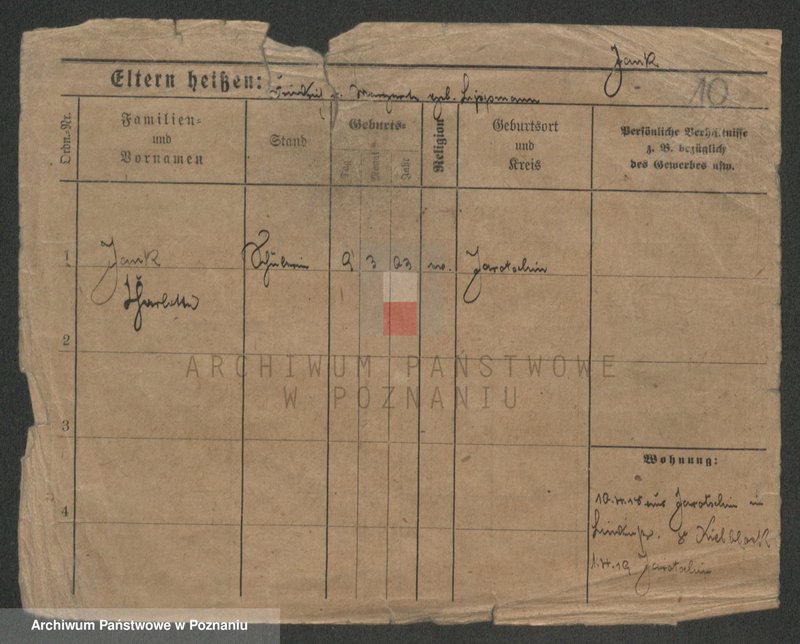 Jank
10
Eltern heißen: Margarete geb. Lippmann
Ordn.-Nr.
Familien-
und
Vornamen
Stand
Geburts-
Tag
Monat
Jahr
Religion
Geburtsort
und
Kreis
Persönliche Verhältnisse
z. B. bezüglich
des Gewerbes usw.
1
Jank Schülerin 9 3 03 Jarotschin
Charlotte
2
ARCHIWUM PAŃSTWOWE
W POZNANIU
3
Wohnung:
4
10.4.18 aus Jarotschin in
8
1.4.19 Jarotschin
Archiwum Państwowe w Poznaniu